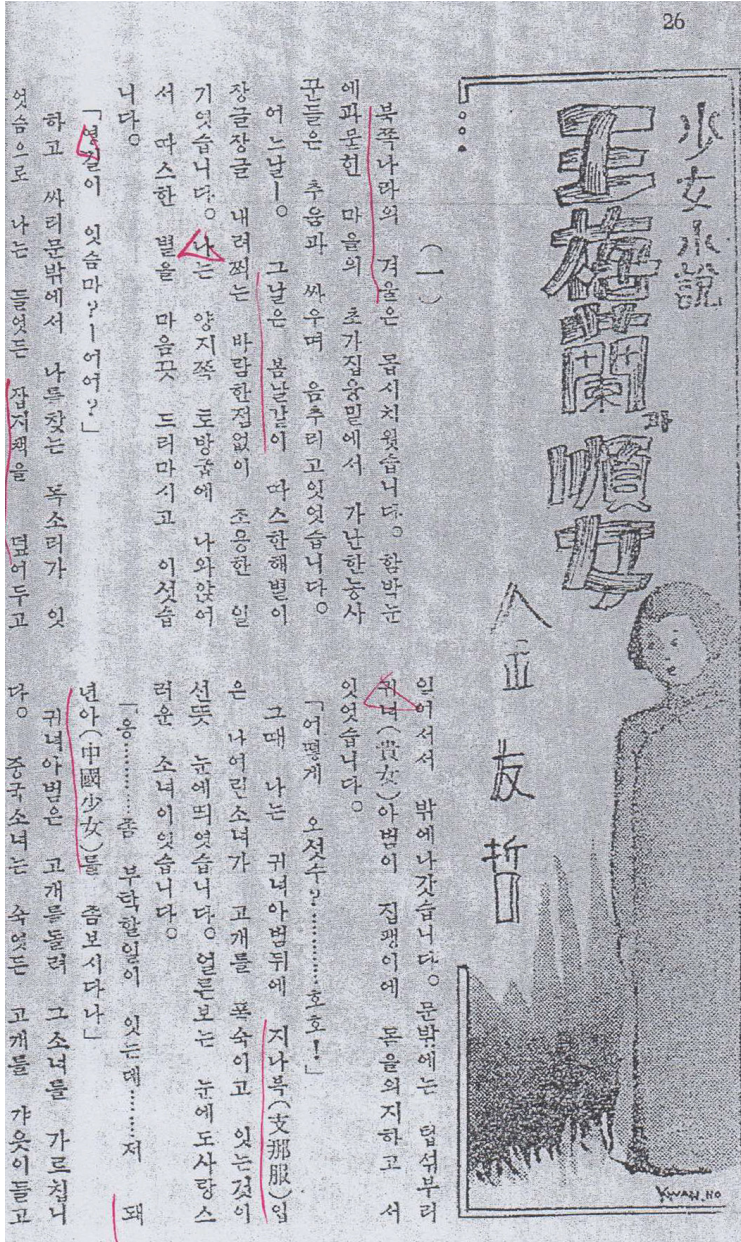 26
少女小說
王梅蘭과順女
金友哲
(一)
북쪽나라의 겨울은 몹시치웟습니다。 함박눈
에파뭇힌 마을의 초가집웅밑에서 가난한농사
꾼들은 추움과 싸우며 음추리고잇엇습니다。
어느날―。 그날은 봄날같이 따스한해볕이
장글장글 내려쬐는 바람한점없이 조용한 일
기엿습니다。 나는 양지쪽 토방굽에 나와앉어
서 따스한 볕을 마음끗 드리마시고 이섯습
니다。
「영길이 잇슴마?―어어?」
하고 싸리문밖에서 나를찾는 목소리가 잇
엇슴으로 나는 들엇든 잡지책을 덮어두고
일어서서 밖에나갓습니다。 문밖에는 텁석부리
귀녀(貴女)아범이 집팽이에 몸을의지하고 서
잇엇습니다。
「어떻게 오섯수?…………호호!」
그때 나는 귀녀아범뒤에 지나복(支那服)입
은 나어린소녀가 고개를 폭숙이고 잇는것이
선뜻 눈에띄엿습니다。 얼른보는 눈에도사랑스
러운 소녀이잇습니다。
「응…………좀 부탁할일이 잇는데………저 돼
년아(中國少女)를 좀보시다나」
귀녀아범은 고개를돌려 그소녀를 가르칩니
다。 중국소녀는 숙엿든 고개를 갸웃이들고
KWAN.HO